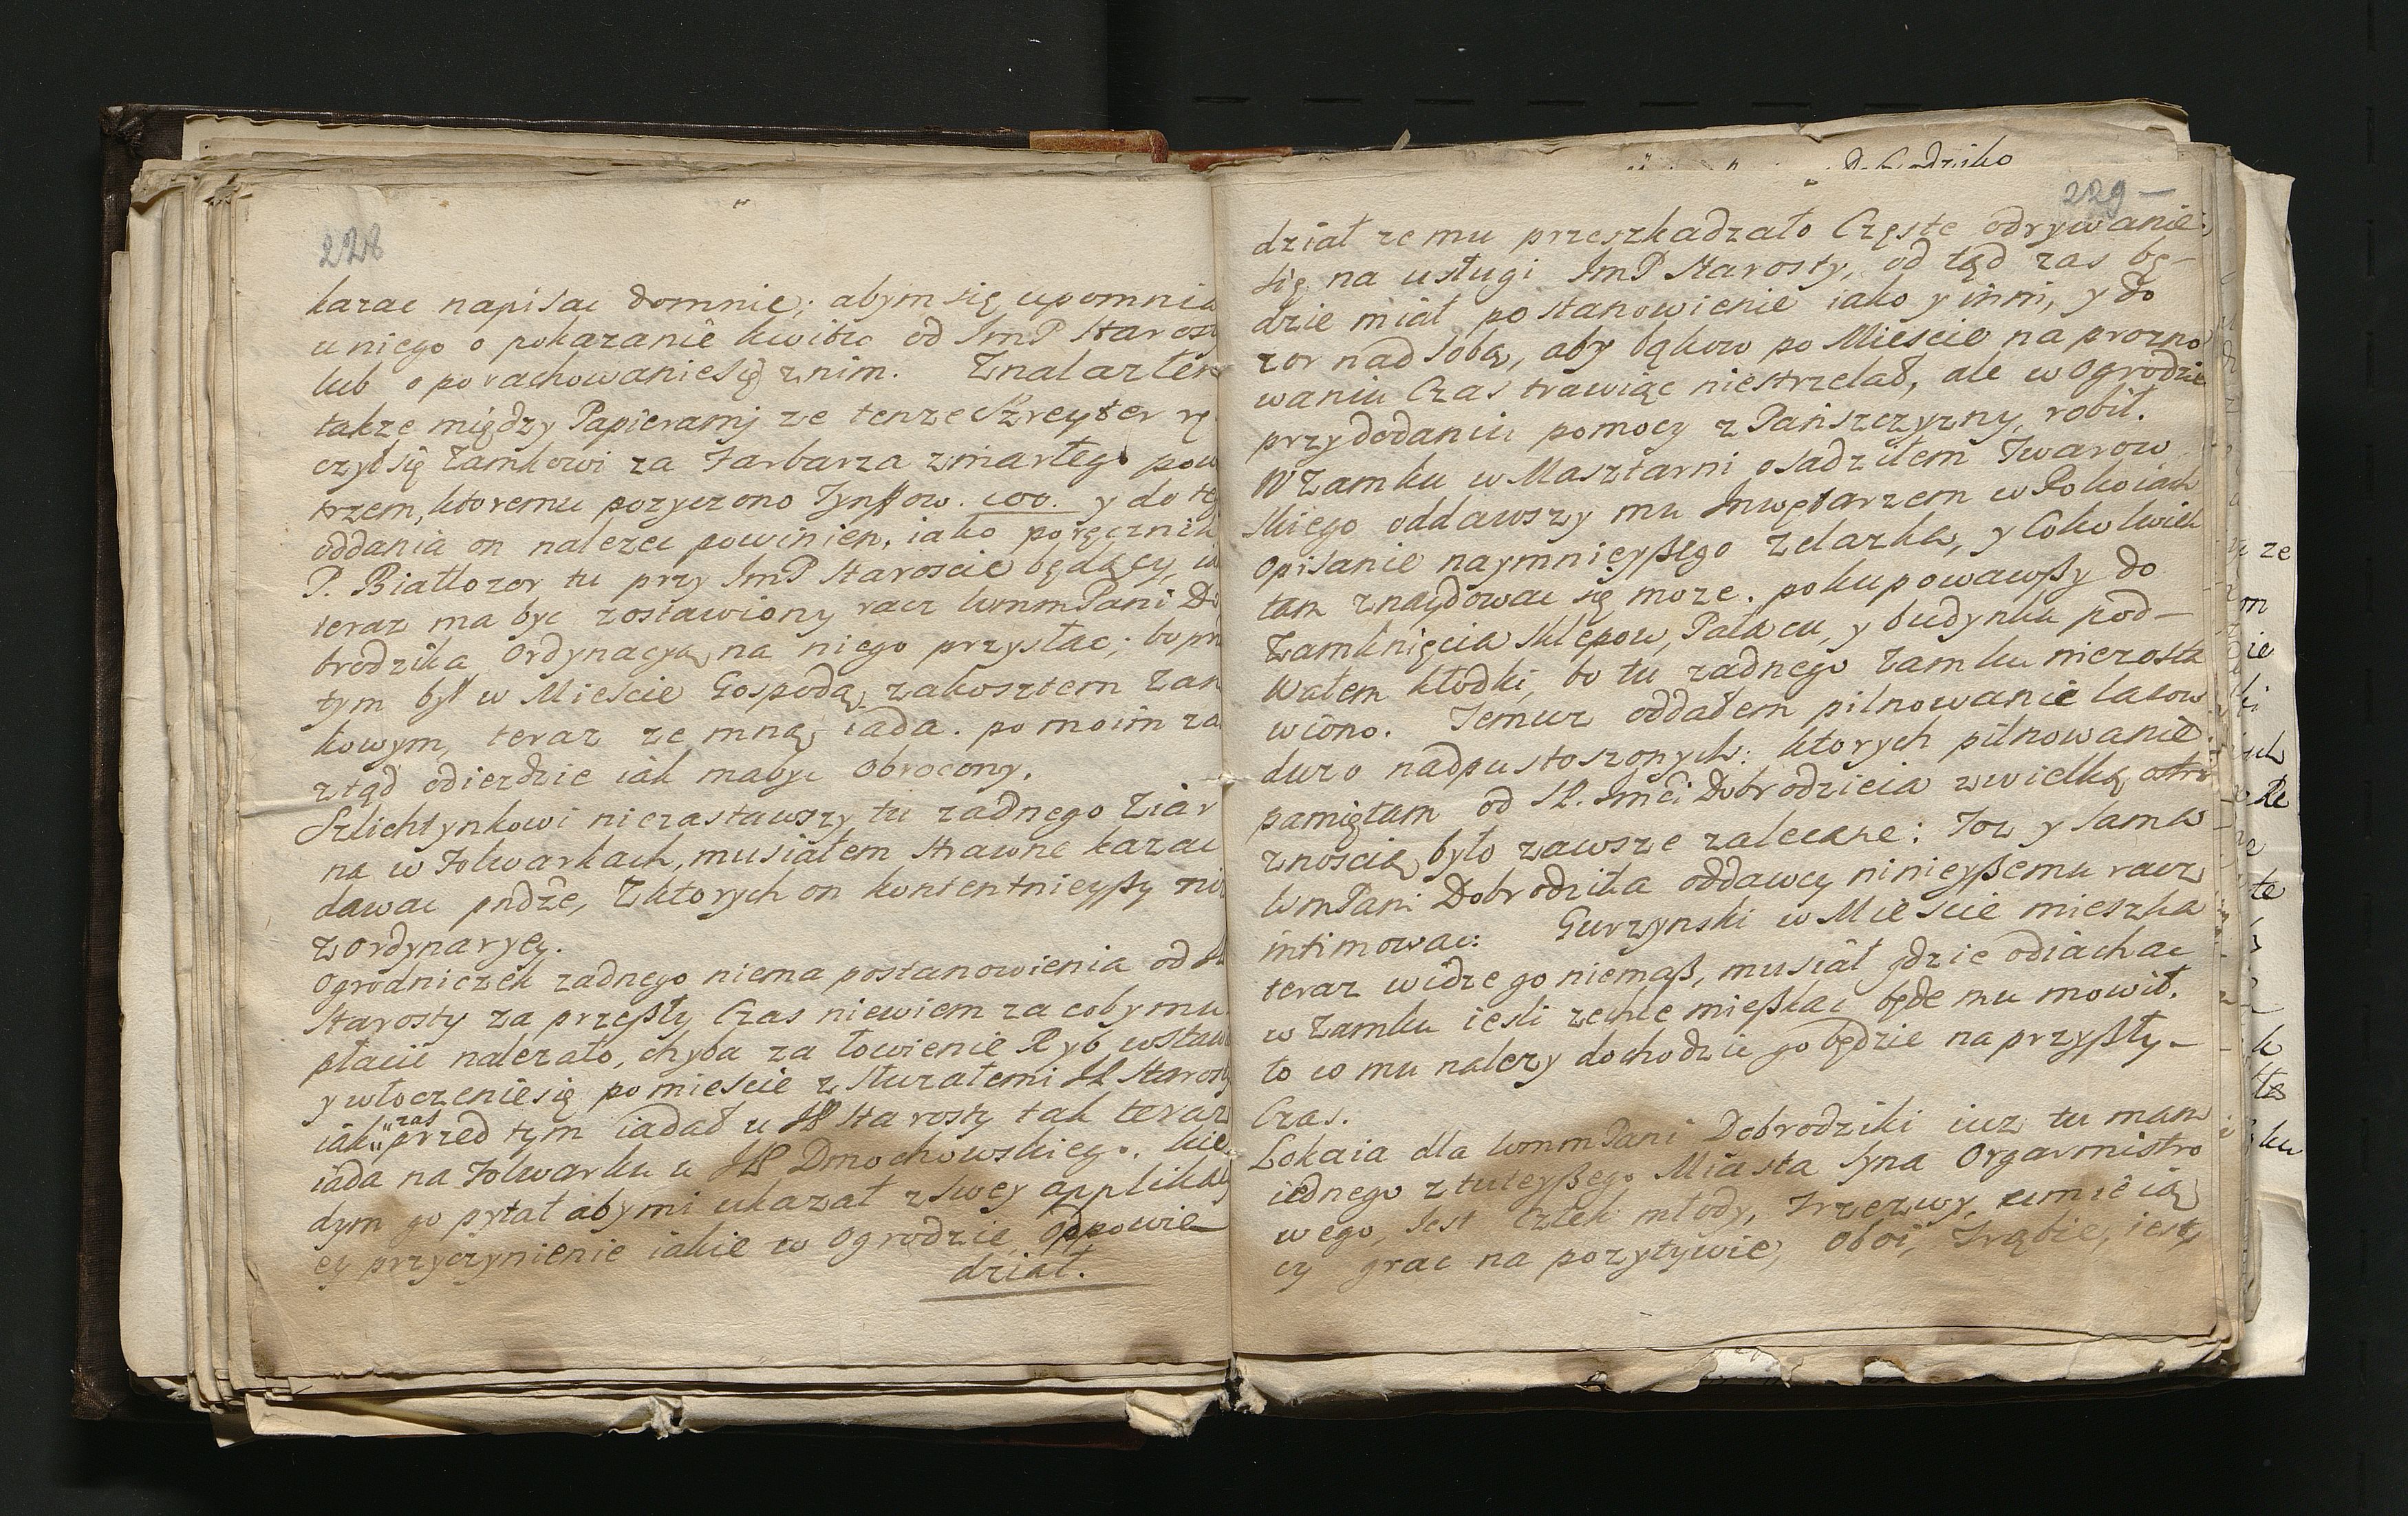 228
kazac napisac domnie; abym się upomnia
u niego o pokazanie kwitu od ImP Staros
lub o porachowanie się z nim. Znalazłem
takze między Papierami ze tenze Szreyter rę
czył się Zamkowi za Farbarza zmarłego pow
trzem, ktoremu pozyczono Tynffow. 100. y do te
oddania on nalezec powinien, iako poręcznik
P. Białłozor tu przy ImP Staroscie będący, ia
teraz ma byc zostawiony racz WmmPani Do
brodzika Ordynacyą na niego przysłac; bo prze
tym był w Miescie Gospodą zakosztem Zam
kowym, teraz ze mną iada. po moim za
ztąd odiezdzie iak mabyc obrocony.
Szlichtynkowi niezastawszy tu zadnego Ziar
na w Folwarkach, musiałem strawne kazac
dawac pndze, Zktorych on kontentnieyszy niz
z ordynaryey.
Ogrodniczek zadnego niema postanowienia od JP
Starosty za przeszły Czas niewiem za coby mu
płacic nalezało, chyba za łowienie Ryb wstaw
y włoczenie się po miescie z Sturałemi JP Starosty
iak "zas" przed tym iadał u JP Starosty tak teraz
iada na Folwarku u JP Dmochowskiego. Kie
dym go pytał aby mi ukazał z swey applika
cy przyczynienie iakie w Ogrodzie, Odpowie-
dział.
229 -
dział ze mu przeszkadzało Częste odrywanie
się na usługi ImP Starosty, od tąd zas bę-
dzie miał postanowienie iako y inni, y do
zor nad sobą, aby bąkow po Miescie na prozno
waniu Czas trawiąc niestrzelał, ale w Ogrodzie
przydodaniu pomocy z Pańszczyzny, robił.
W Zamku w Masztarni osadziłem Twarow
skiego oddawszy mu Inwętarzem w Pokoiach
opisanie naymnieyszego Zelazka, y Cokolwiek
tam znaydowac się moze. pokupowawszy do
Zamknięcia Sklepow, Pałacu, y budynku pod-
wałem kłodki, bo tu zadnego Zamku niezosta
wiono. Temuz oddałem pilnowanie lasow
duzo nadpustoszonych: ktorych pilnowanie
pamiętam od JP. Imci Dobrodzieia zwielką ostro
znoscią było zawsze zalecane: Toz y sama
WmPani Dobrodzika oddawcy ninieyszemu racz
intimowac: Gurzynski w Miescie mieszka
teraz widze go niemasz, musiał gdzie odiachac
w Zamku iesli zechce mieszkac będe mu mowił.
to co mu nalezy dochodzic go będzie na przyszły-
Czas.
Lokaia dla WmmPani Dobrodziki iuz tu mam
iednego z tuteyszego Miasta Syna Orgarmistro
wego, Jest Człek młody, Trzezwy, umieią
cy grac na pozytywie, Oboi, Trąbie, iest